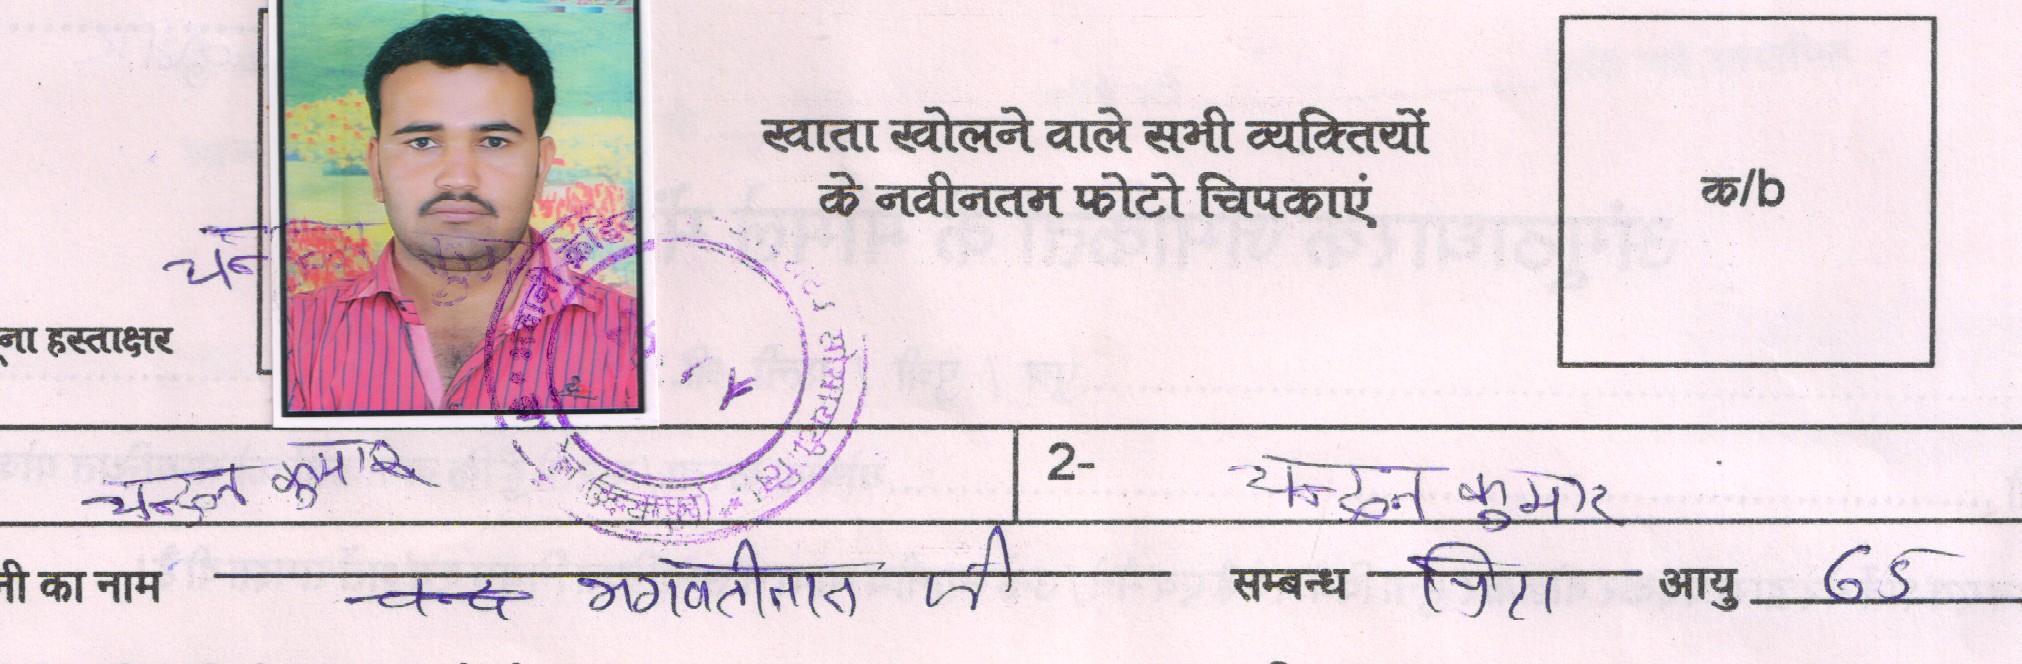 खाता खोलने वाले सभी व्यक्तियों
के नवीनतम फोटो चिपकाएं
क/b
चन
ना हस्ताक्षर
चन्दन कुमार
2- चन्दन कुमार
नी का नाम भगवतीलाल जी सम्बन्ध पिता आयु 65